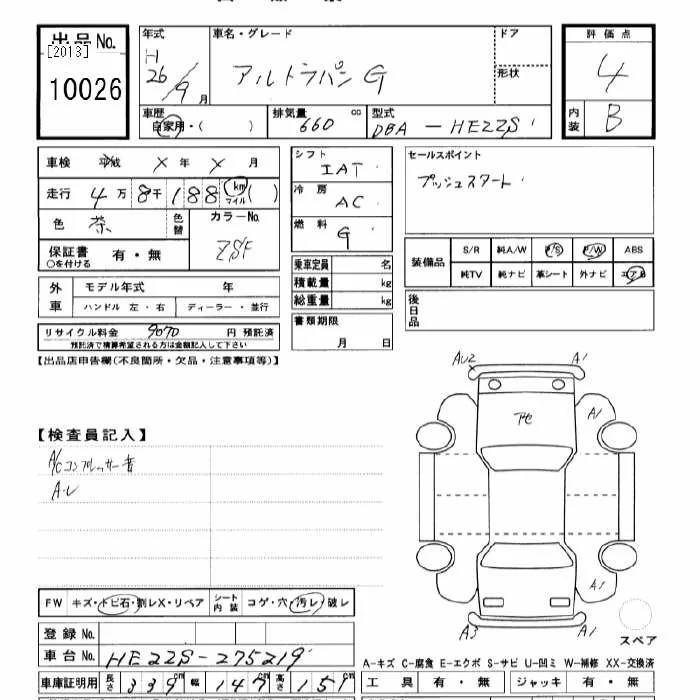 出品No.
[2013]
10026
年式
H
26/9月
車名・グレード
アルトラパンG
ドア
形状
評価点
4
内装
B
車歴
自家用・( )
排気量
660 cc
型式
DBA - HE22S
車検 平成 X 年 X 月
走行 4万 8千 188 km マイル ( )
色 茶
色替
カラーNo.
ZSF
保証書 有・無
○を付ける
外車
モデル年式 年
ハンドル 左・右
ディーラー・並行
リサイクル料金 9070 円 預託済
預託済で精算希望される方は金額記入して下さい
シフト
IAT
冷房
AC
燃料
G
乗車定員 名
積載量 kg
総重量 kg
書類期限
月 日
セールスポイント
プッシュスタート
装備品
S/R 純A/W P/S P/W ABS
純TV 純ナビ 革シート 外ナビ エアB
後日品
【出品店申告欄(不良箇所・欠品・注意事項等)】
【検査員記入】
A/Cコンプレッサー音
AU2
A1
A1
A1
A3
A1
スペア
FW キズ・トビ石・割レX・リペア
シート内装 コゲ・穴・汚レ・破レ
登録No.
車台No. HE22S-275219
車庫証明用 長さ 339cm 幅 147cm 高さ 151cm
A-キズ C-腐食 E-エクボ S-サビ U-凹ミ W-補修 XX-交換済
工具 有・無 ジャッキ 有・無